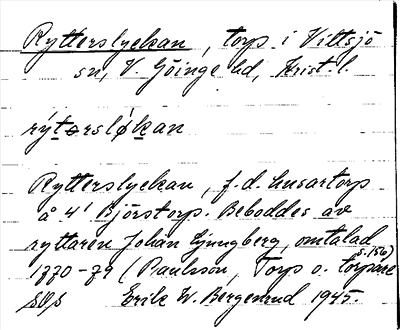 Rytterslyckan, torp i Vittsjö
sn, V. Göinge hd, Krist. l.
rýtərsløkan
Ryttarslyckan, f.d. husartorp
å 4¹ Björstorp. Beboddes av
ryttaren Johan Ljungberg, omtalad
1770-79 (Paulsson, Torp o. torpare s. 156)
Erik W. Bergenrud 1945.